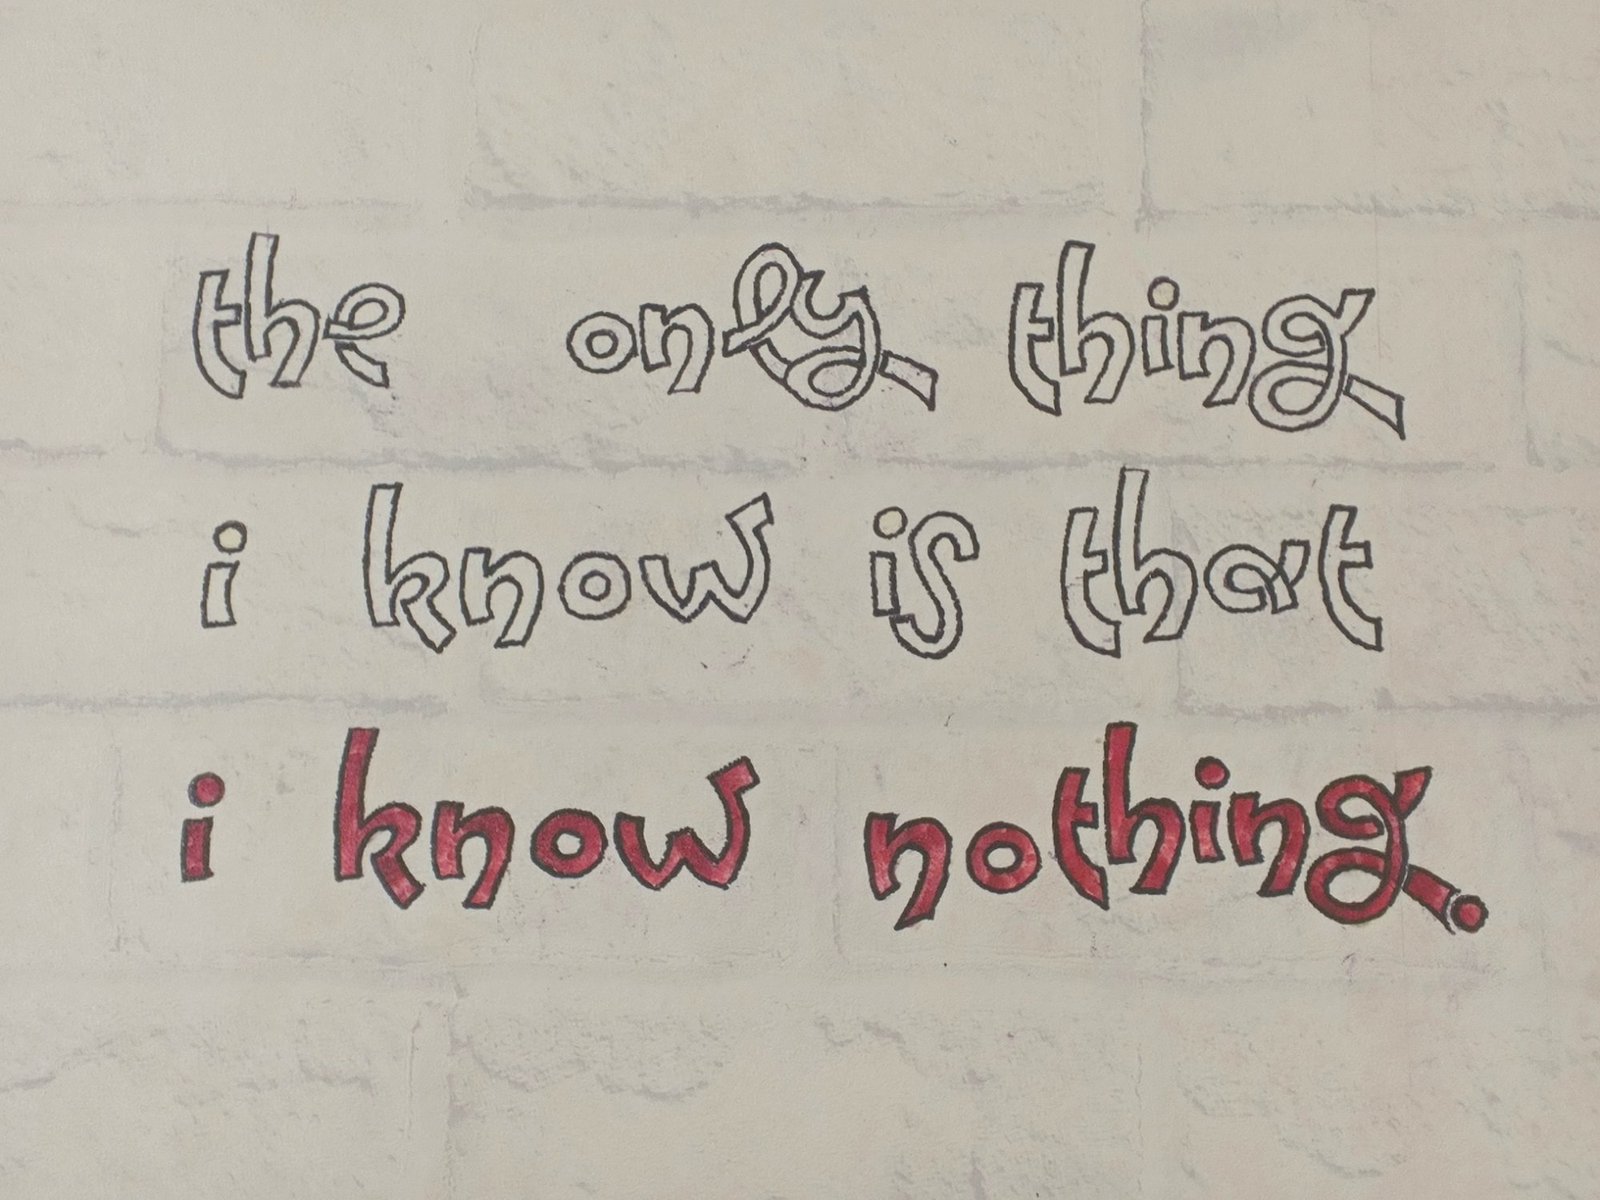 the only thing
i know is that
i know nothing.